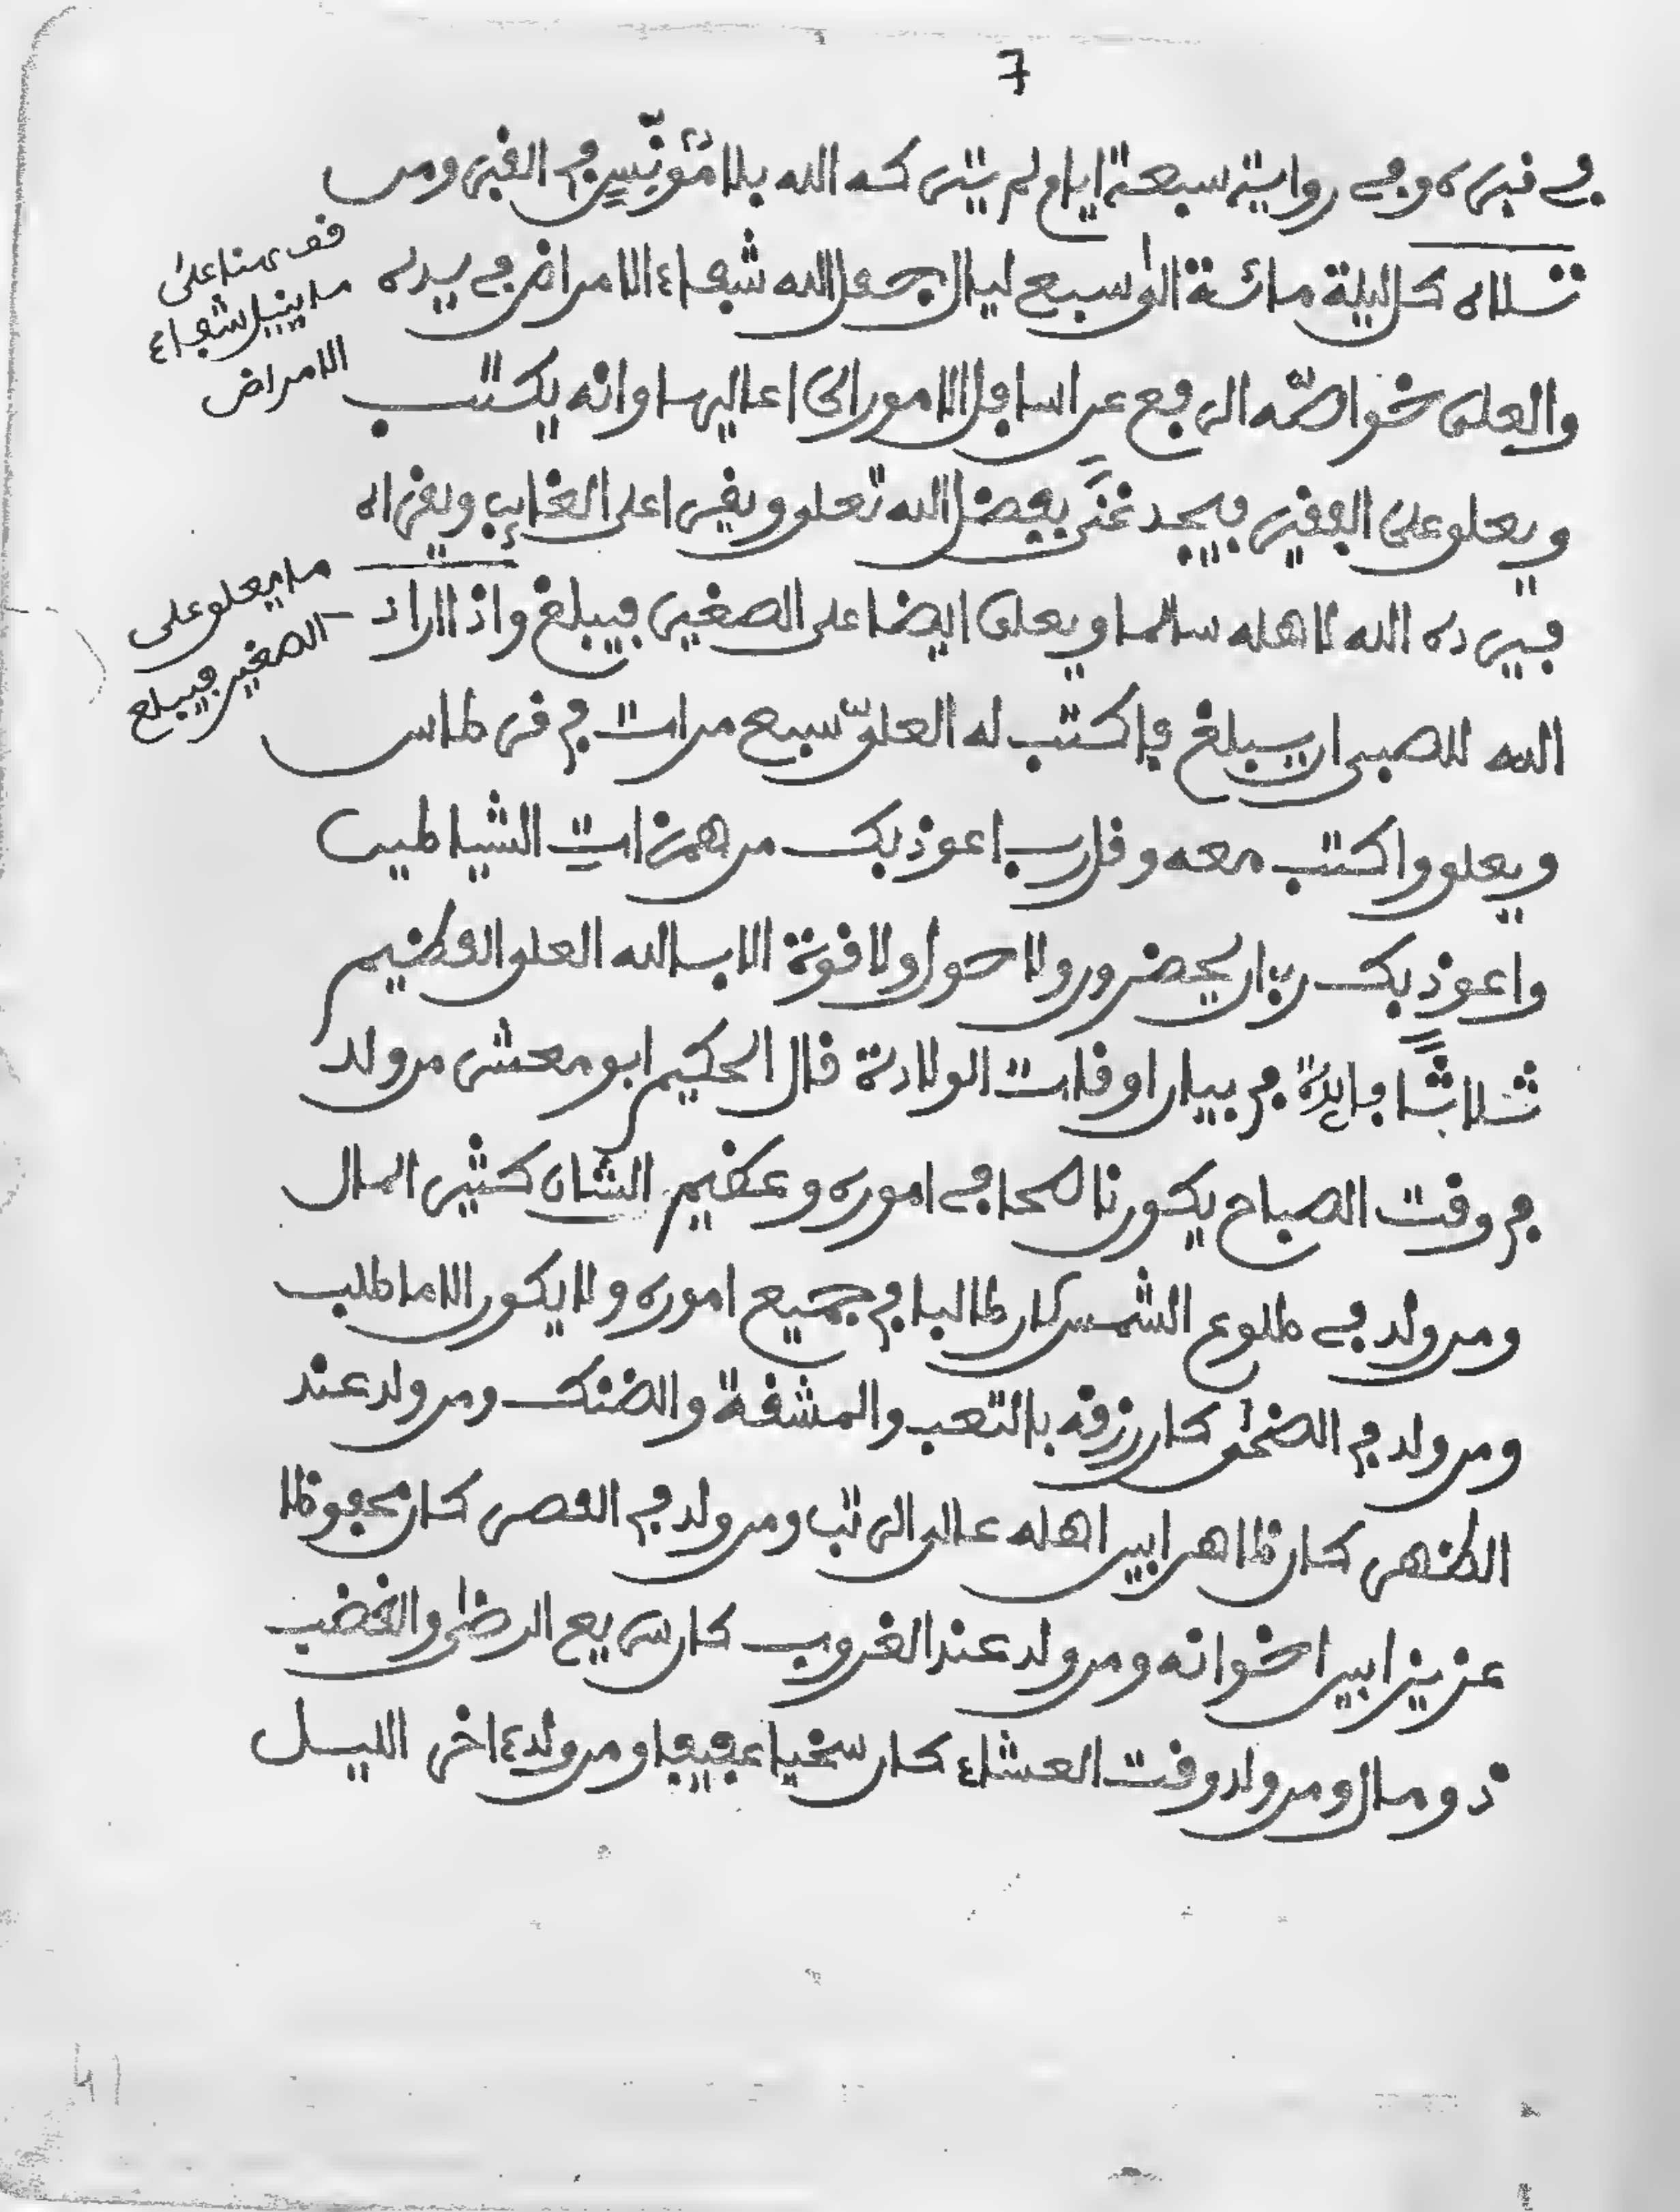 7
في قبره وفي رواية سبعة ايام لم يتركه الله بلا مؤنّس في القبر ومن
تلاه كل ليلة مائة الى سبع ليال جعل الله شفاء الامراض في يده
قف هنا على
ما ينيل شفاء
الامراض
والعلى خواصّه الرفع عن اسافل الامور الى اعاليها وانه يكتب
ويعلق على الفقير فيجد غنًى بفضل الله تعلى ويقرا على الغايب ويقراه
فيرده الله لاهله سالما ويعلق ايضا على الصغير فيبلغ واذا اراد
ما يعلق على
الصغير فيبلغ
الله للصبي ان يبلغ فاكتب له العليّ سبع مرات في قرطاس
ويعلق واكتب معه وقل رب اعوذ بك من همزات الشياطين
واعوذ بك رب ان يحضرون ولا حول ولا قوة الا بالله العلي العظيم
ثلاثًا فايدة في بيان اوقات الولادة قال الحكيم ابو معشر من ولد
في وقت الصباح يكون ناصحا في اموره وعظيم الشان كثير المال
ومن ولد في طلوع الشمس كان طالبا في جميع اموره ولا يكون الا ما طلب
ومن ولد في الضحى كان رزقه بالتعب والمشقة والضنك ومن ولد عند
الظهر كان ظاهرا بين اهله عالي الرتب ومن ولد في العصر كان محفوظا
عزيزا بين اخوانه ومن ولد عند الغروب كان سريع الرضى والغضب
ذو مال ومن ولد وقت العشاء كان سخيا عفيفا ومن ولد ءاخر الليل